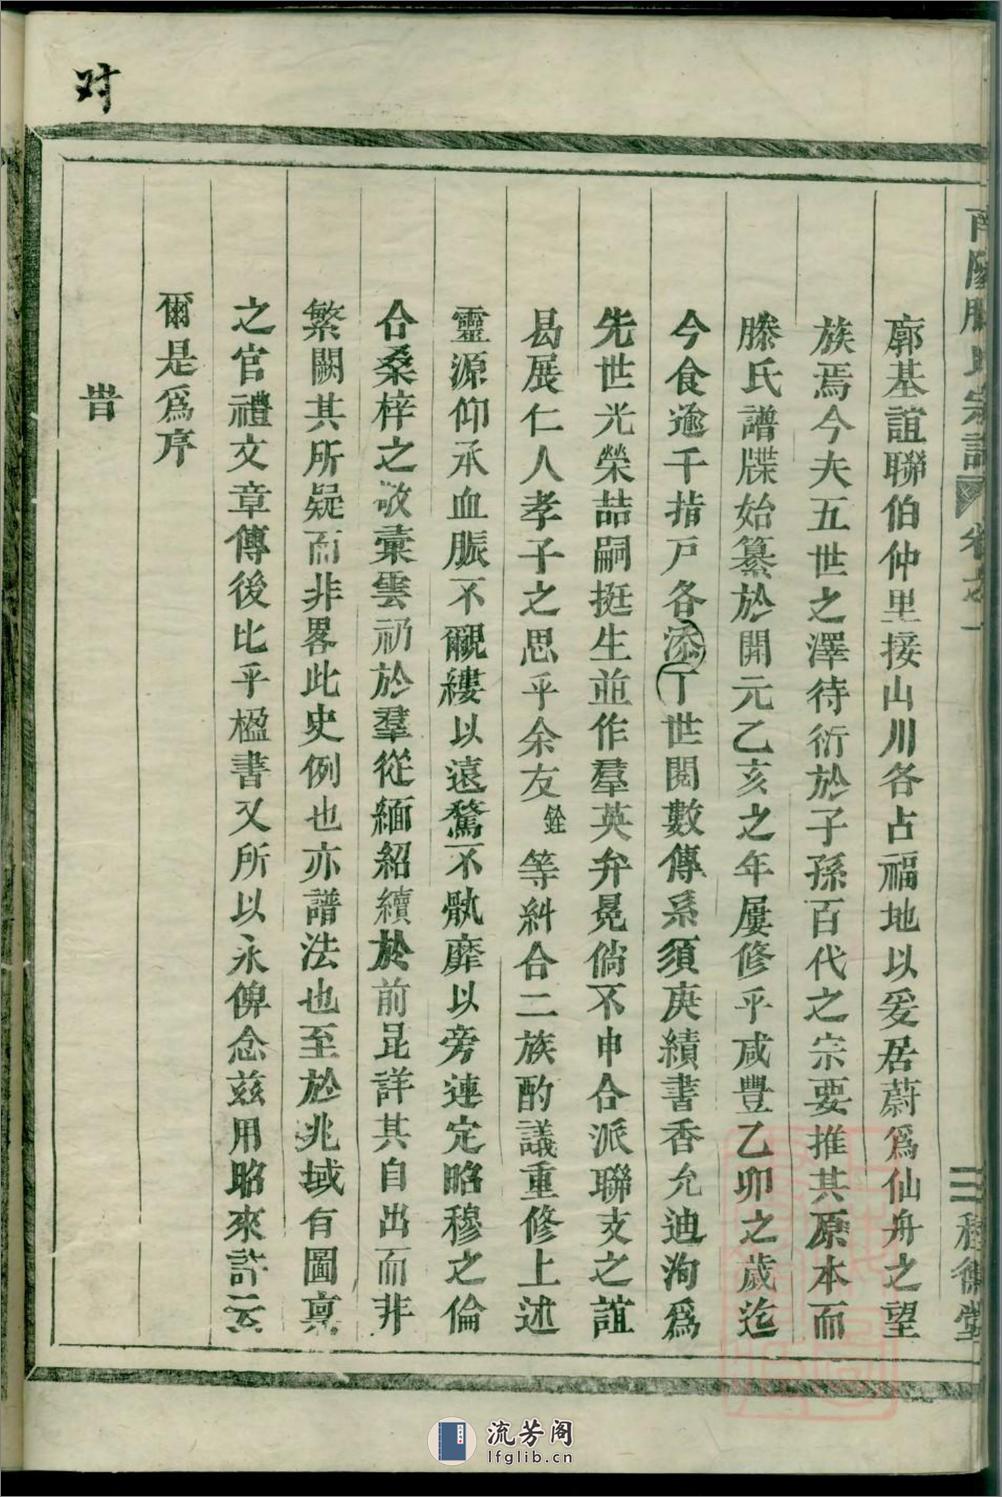 南陽滕氏宗譜 卷之一 三 積德堂
廓基誼聯伯仲里接山川各占福地以爰居蔚爲仙舟之望
族焉今夫五世之澤待衍於子孫百代之宗要推其原本而
滕氏譜牒始纂於開元乙亥之年屢修乎咸豐乙卯之歲迄
今食逾千指戸各添丁世閱數傳系須庚續書香允迪洵爲
先世光榮喆嗣挺生並作羣英弁冕倘不申合派聯支之誼
曷展仁人孝子之思乎余友銓等糾合二族酌議重修上述
靈源仰承血脈不覼縷以遠騖不骫靡以旁連定昭穆之倫
合桑梓之敬彙雲礽於羣從緬紹續於前昆詳其自出而非
繁闕其所疑而非畧此史例也亦譜法也至於兆域有圖稟
之官禮文章傳後比乎楹書又所以永俾念兹用昭來許云
爾是爲序
旹
对
流芳阁
lfglib.cn